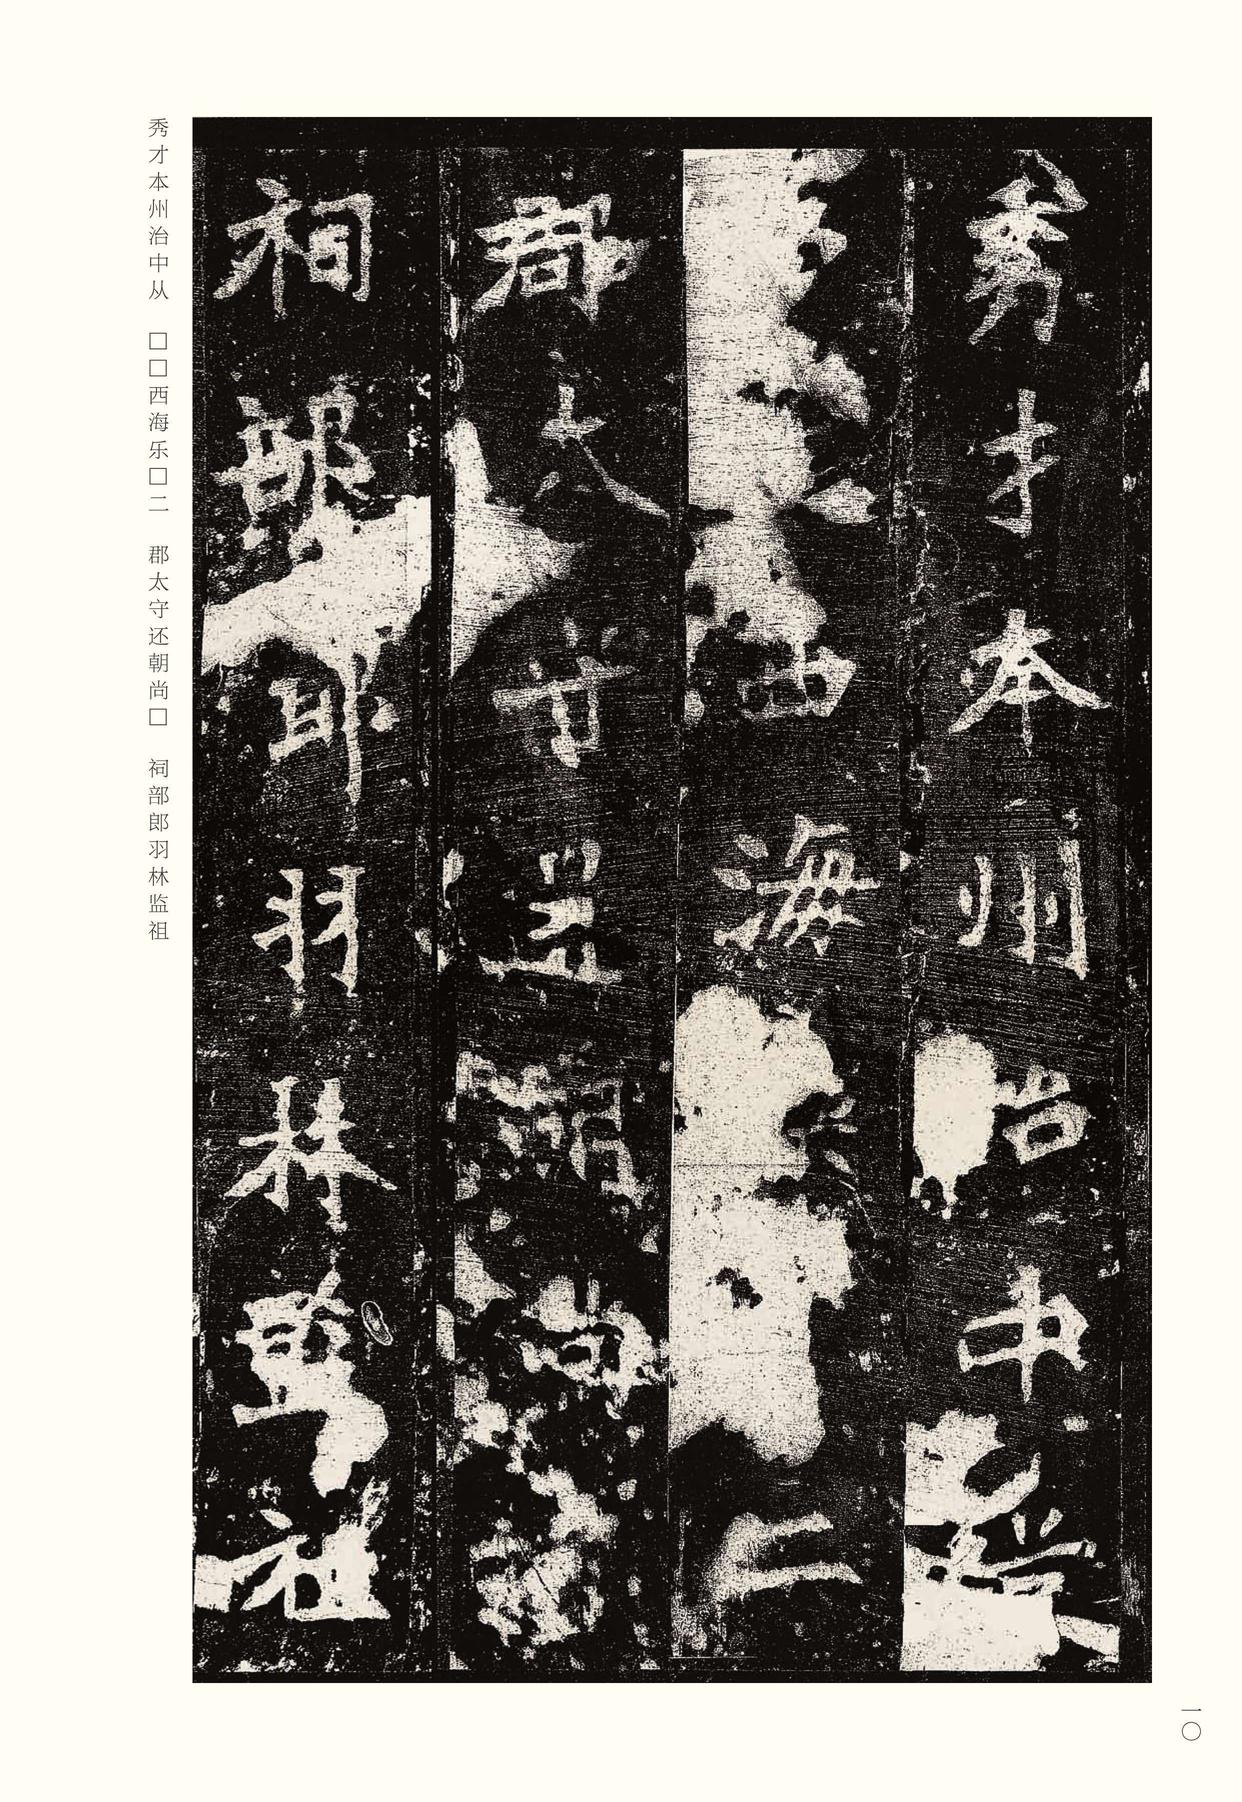 秀才本州治中從
西海二
郡太守還朝尚
祠部郎羽林監祖
秀才本州治中从　□□西海乐□二　郡太守还朝尚□　祠部郎羽林监祖
一〇